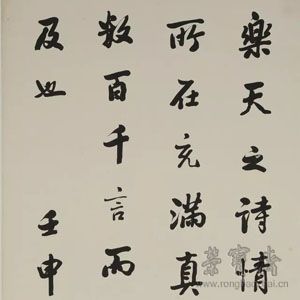 樂天之詩情
所在充滿真
数百千言而
及也 壬申
荣宝斋
www.rongbaozhai.cn